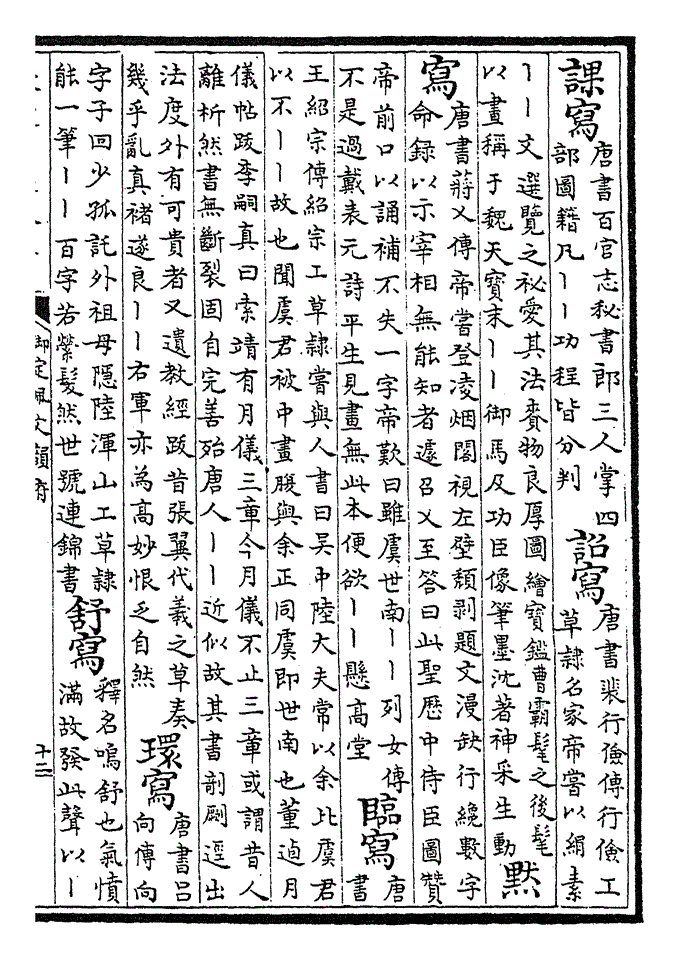 課寫
唐書百官志秘書郎三人掌四
部圖籍凡丨丨功程皆分判
詔寫
唐書裴行儉傳行儉工
草隸名家帝嘗以絹素
丨丨文選覽之祕愛其法賚物良厚圖繪寶鑑曹霸髦之後髦
以畫稱于魏天寶末丨丨御馬及功臣像筆墨沈著神采生動
默
寫
唐書蔣乂傳帝嘗登凌烟閣視左壁頹剝題文漫缺行纔數字
命錄以示宰相無能知者遽召乂至答曰此聖歷中侍臣圖贊
帝前口以誦補不失一字帝歎曰雖虞世南丨丨列女傳
不是過戴表元詩平生見畫無此本便欲丨丨懸高堂
臨寫
唐
書
王紹宗傳紹宗工草隸嘗與人書曰吳中陸大夫常以余比虞君
以不丨丨故也聞虞君被中畫腹與余正同虞即世南也董逌月
儀帖跋季嗣真曰索靖有月儀三章今月儀不止三章或謂昔人
離析然書無斷裂固自完善殆唐人丨丨近似故其書剞劂逕出
法度外有可貴者又遺教經跋昔張翼代羲之草奏
幾乎亂真褚遂良丨丨右軍亦為高妙恨乏自然
環寫
唐書呂
向傳向
字子回少孤託外祖母隱陸渾山工草隸
能一筆丨丨百字若縈髮然世號連錦書
舒寫
釋名嗚舒也氣憤
滿故發此聲以丨
御定佩文韻府
十二